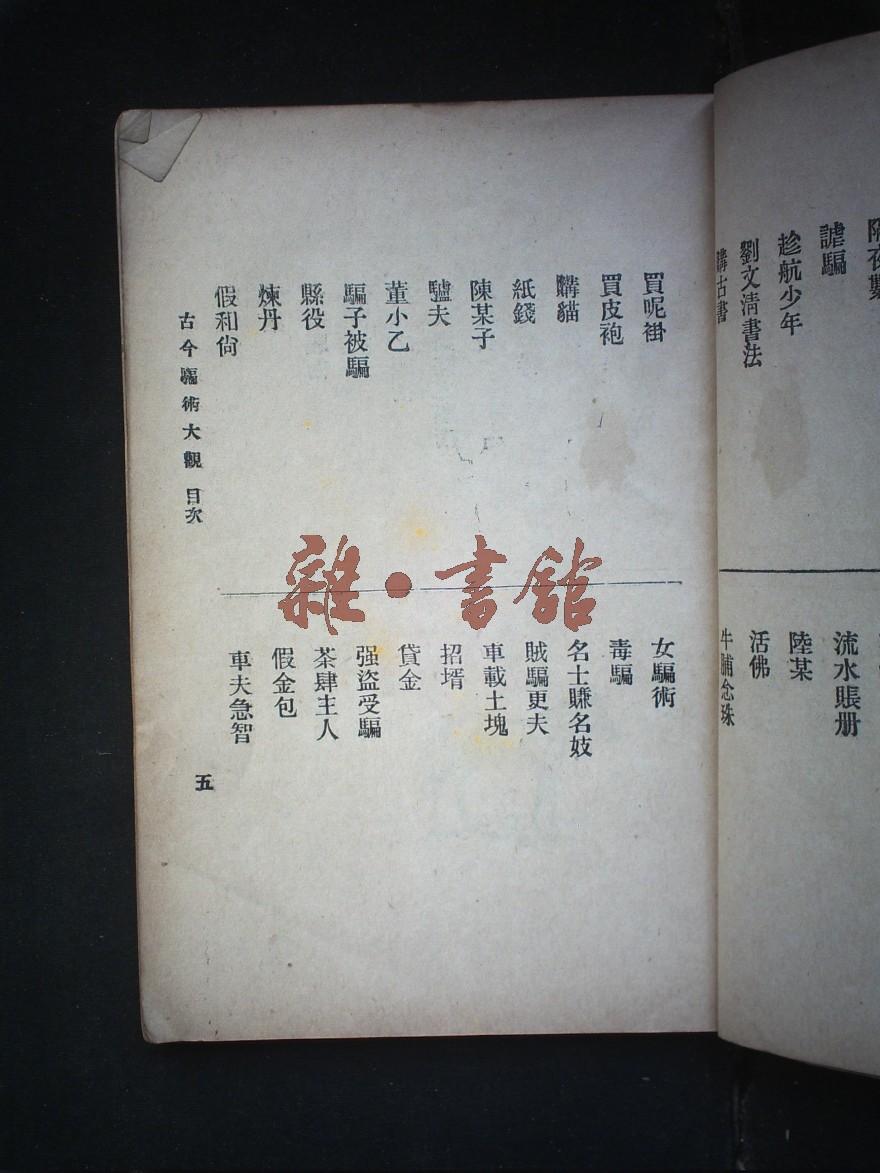 謔騙
趁航少年
劉文淸書法
購古書
流水賬册
陸某
活佛
牛脯念珠
買呢褂
買皮袍
購貓
紙錢
陳某子
驢夫
董小乙
騙子被騙
縣役
煉丹
假和尙
女騙術
毒騙
名士賺名妓
賊騙更夫
車載土塊
招壻
貸金
强盜受騙
茶肆主人
假金包
車夫急智
古今騙術大觀 目次
五
雜·書館